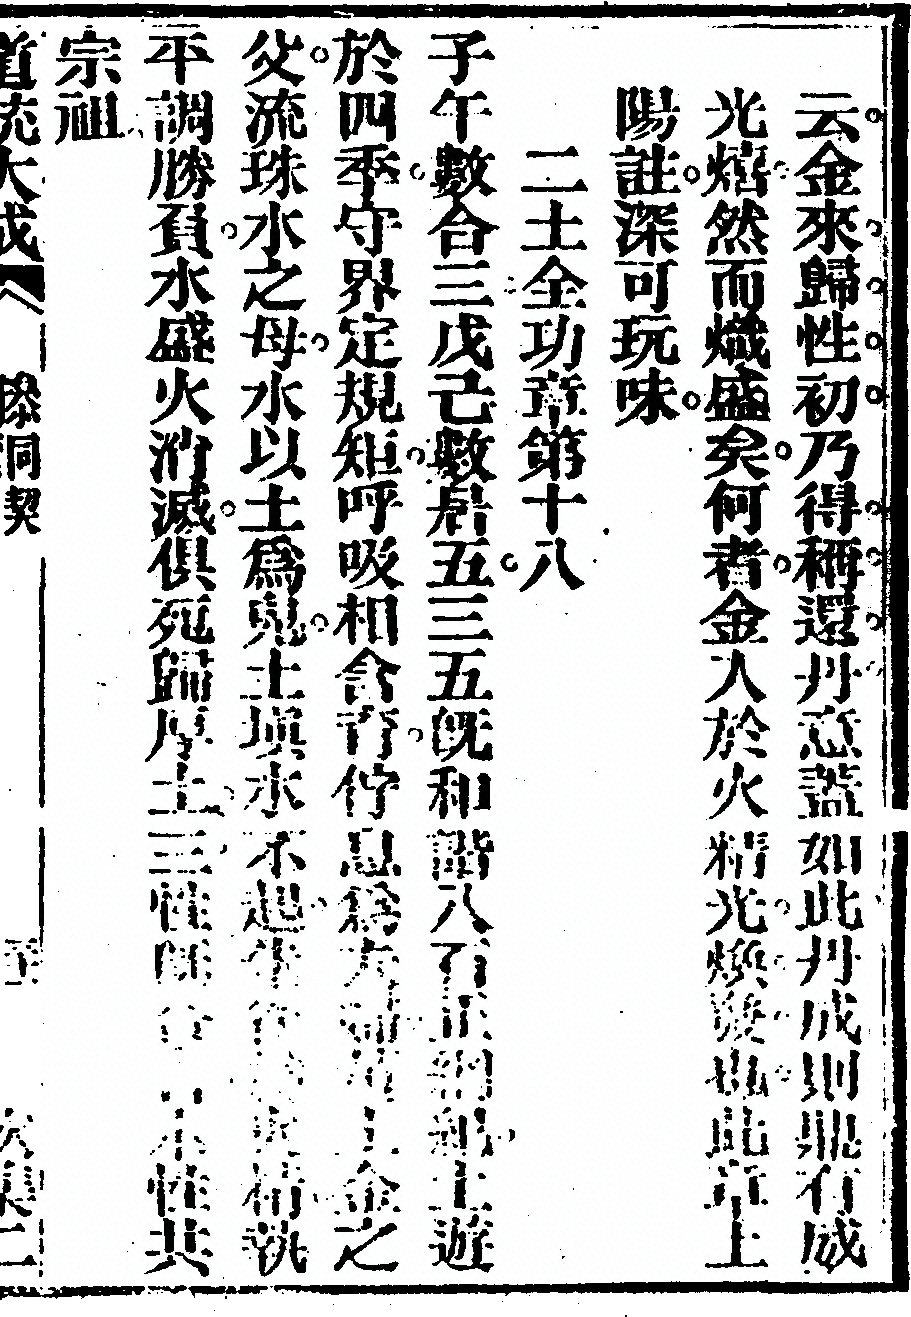 云金來歸性初乃得稱還丹意蓋如此丹成則鼎有威
光熺然而熾盛矣何者金入於火精光煥發也此章上
陽註深可玩味
二土全功章第十八
子午數合三戊己數居五三五旣和諧八石正綱紀土遊
於四季守界定規矩呼吸相含育佇息爲夫婦黃土金之
父流珠水之母水以土爲鬼土塡水不起朱雀火精執
平調勝負水盛火消滅俱死歸厚土三性旣合會本性共
宗祖
道統大成 參同契